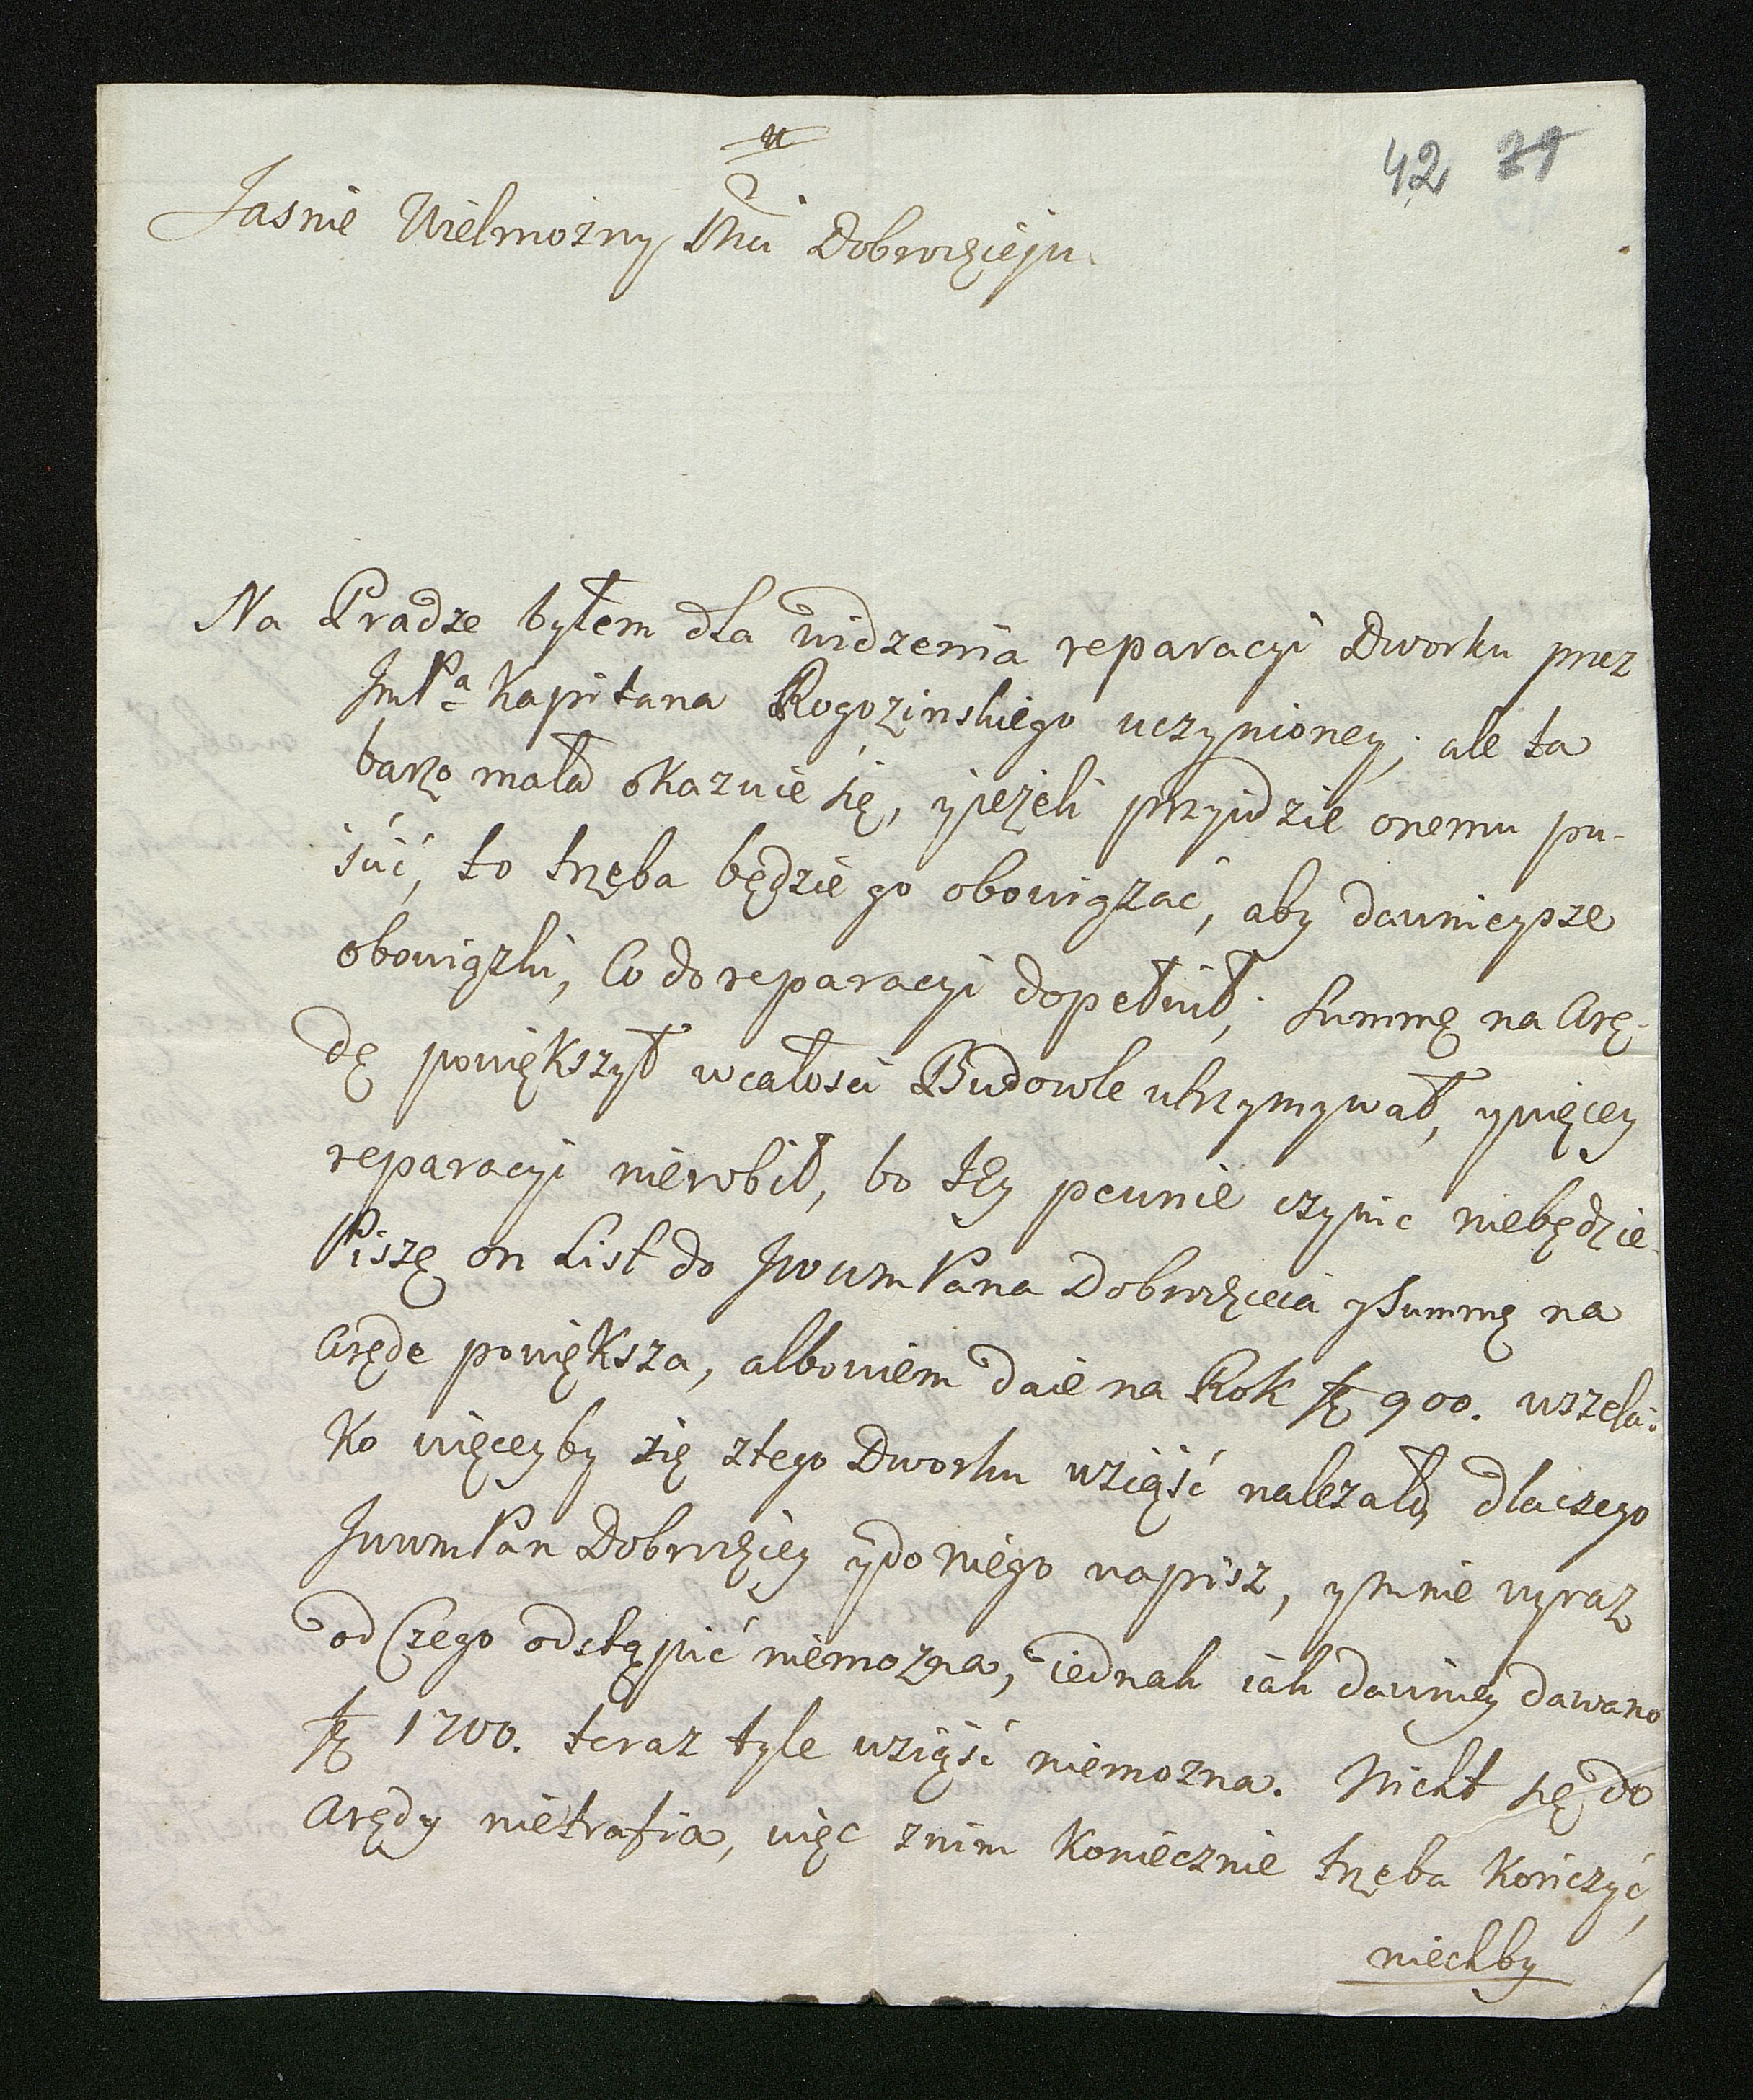 42 29
Jasnie Wielmożny Mci Dobrodzieju.
Na Pradze byłem dla widzenia reparacyi Dworku przez
JmPa Kapitana Rogozinskiego uczynioney; ale ta
barzo mała okazuie się, y jeżeli przyidzie onemu pu-
ścić, to trzeba będzie go obowiązać, aby dawnieysze
obowiązki, Co do reparacyi dopełnił; Summę na Arę-
dę powiększył w całosci Budowle utrzymywał, y więcey
reparacyi nierobił, bo tey pewnie czynic niebędzie.
Piszę on List do JwwmPana Dobrodzieia y Summę na
Arędę powiększa, albowiem daie na Rok fl 900. wszela-
ko więceyby się z tego Dworku wziąść należało, dlaczego
JwwmPan Dobrodziey y do niego napisz, y mnie wyraz
od Czego odstąpić niemożna, iednak iak dawniey dawano
fl 1700. teraz tyle wziąść niemożna. Nicht się do
Arędy nietrafia, więc z nim koniecznie trzeba kończyć,
niechby